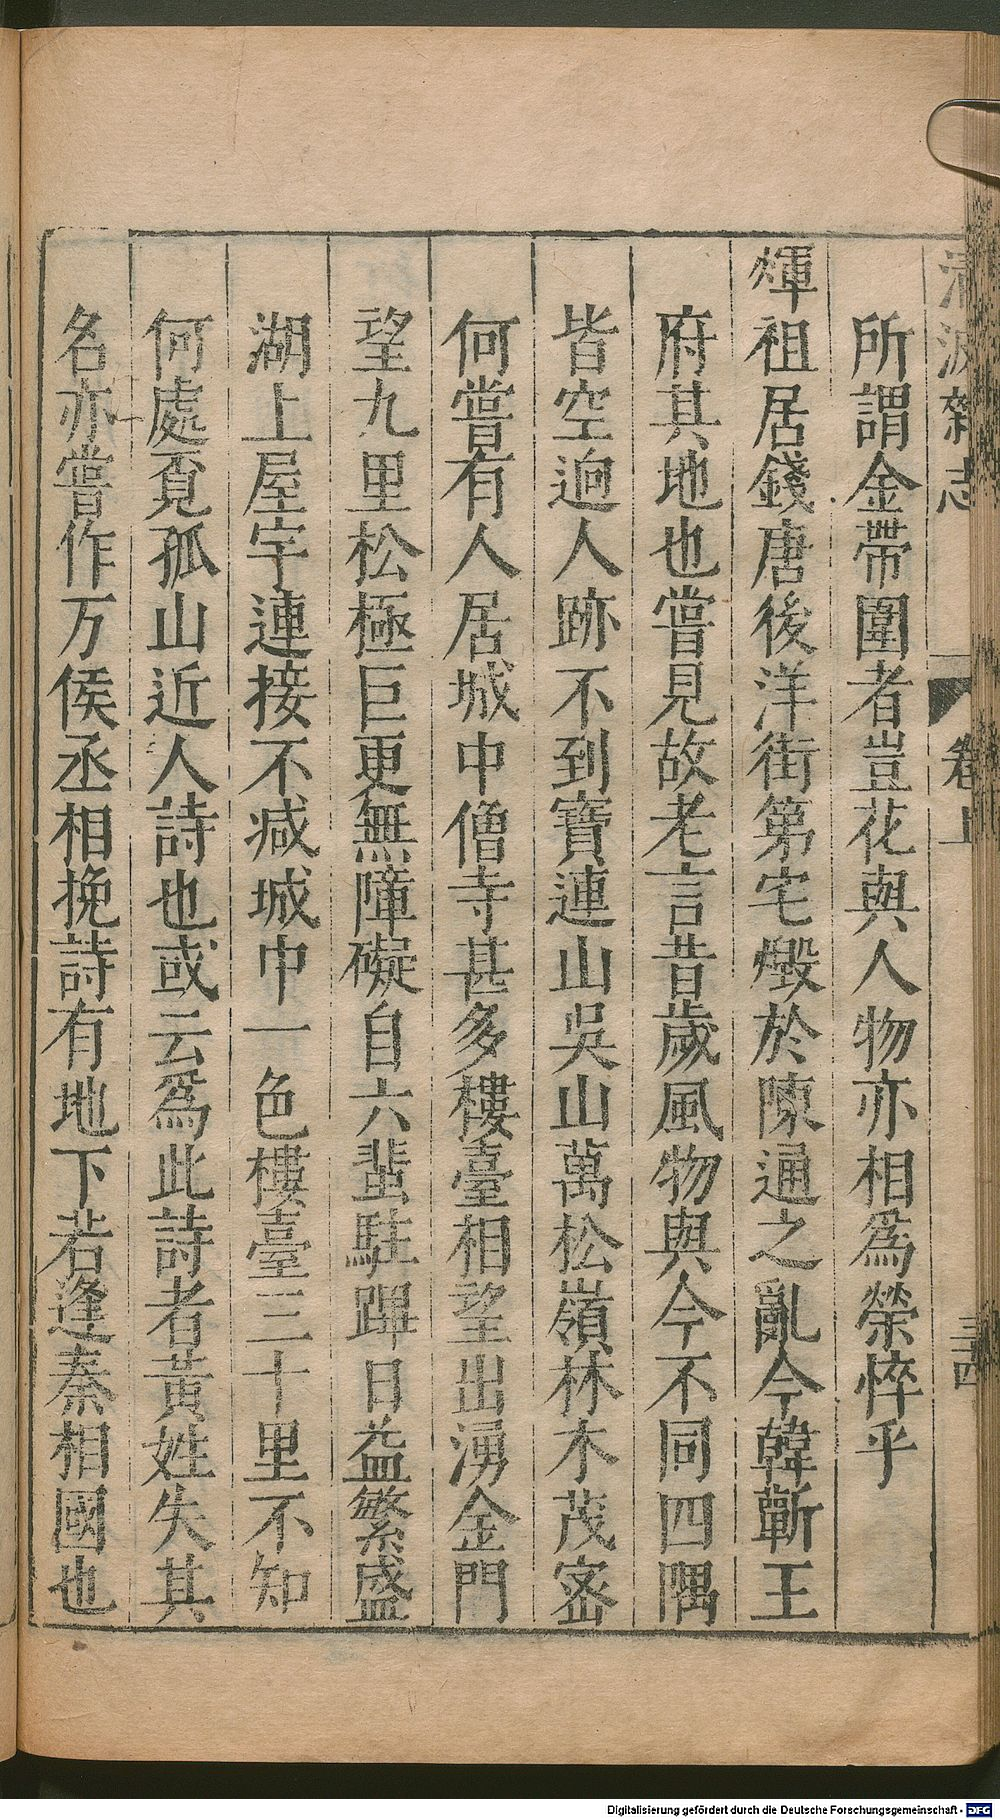 清波雜志
卷上
三十四
所謂金帶圍者豈花與人物亦相爲榮悴乎
煇祖居錢唐後洋街第宅燬於陳通之亂今韓蘄王
府其地也嘗見故老言昔歲風物與今不同四隅
皆空逈人跡不到寶連山吳山萬松嶺林木茂宻
何嘗有人居城中僧寺甚多樓臺相望出湧金門
望九里松極巨更無障礙自六蜚駐蹕日益繁盛
湖上屋宇連接不减城巾一色樓臺三十里不知
何處覔孤山近人詩也或云爲此詩者黃姓失其
名亦嘗作万侯丞相挽詩有地下若逢秦相國也
Digitalisierung gefördert durch die Deutsche Forschungsgemeinschaft - DFG